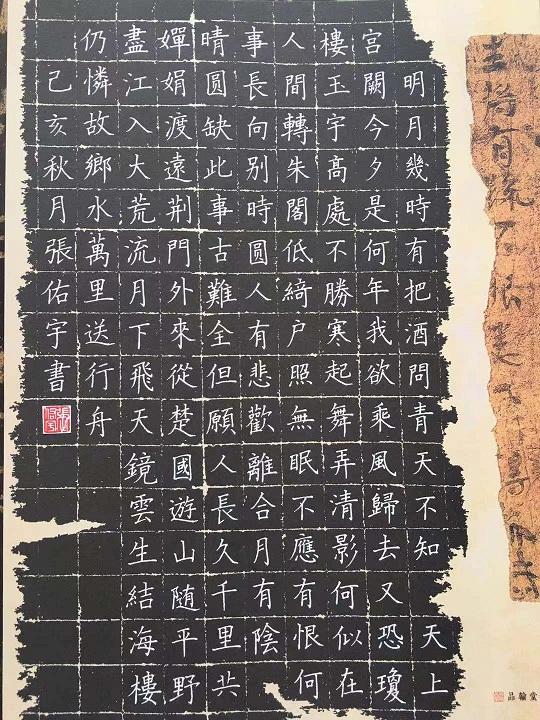 明月幾時有把酒問青天不知天上
宮闕今夕是何年我欲乘風歸去又恐瓊
樓玉宇高處不勝寒起舞弄清影何似在
人間轉朱閣低綺户照無眠不應有恨何
事長向别時圓人有悲歡離合月有陰
晴圓缺此事古難全但願人長久千里共
嬋娟渡遠荆門外來從楚國遊山随平野
盡江入大荒流月下飛天鏡雲生結海樓
仍憐故鄉水萬里送行舟
己亥秋月張佑宇書
品翰堂